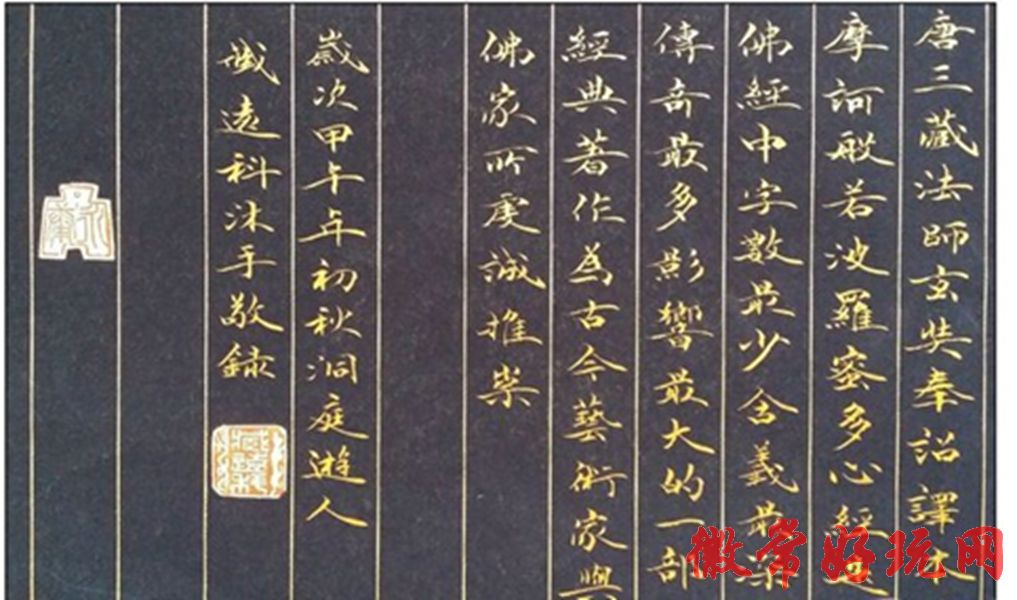 唐三藏法師玄奘奉詔譯本
摩訶般若波羅蜜多心經是
佛經中字數最少含義最深
傳奇最多影響最大的一部
經典著作為古今藝術家與
佛家所虔誠推崇
歲次甲午年初秋洞庭遊人
臧遠科沐手敬錄
徽常好玩网